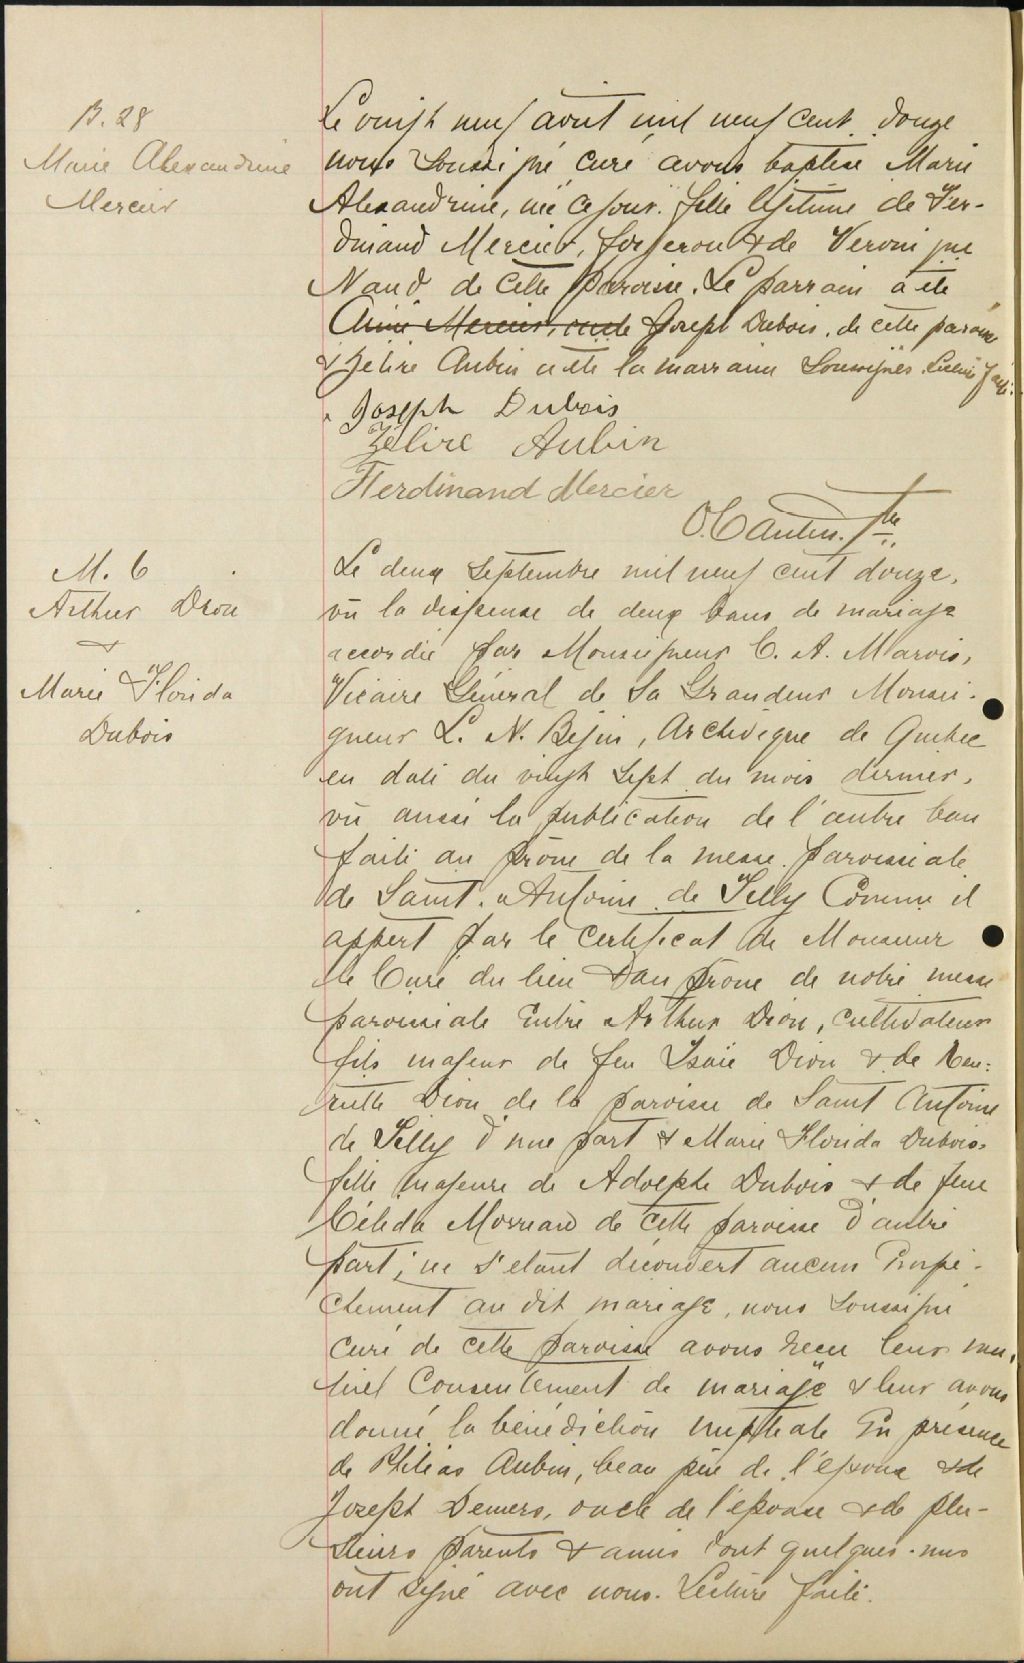 B. 28
Marie Alexandrine
Mercier
Le vingt neuf août mil neuf cent douze
nous soussigné curé avons baptisé Marie
Alexandrine, née ce jour. fille légitime de Fer-
dinand Mercier, forgeron & de Veronique
Naud de cette paroisse. Le parrain a été
Mercier, oncle Joseph Dubois. de cette paroisse
& Zélire Aubin a été la marraine Soussignés. Lecture faite.
Joseph Dubois
Zélire Aubin
Ferdinand Mercier
O. Cantin. Ptre
M. 6
Arthur Dion
&
Marie Florida
Dubois
Le deux Septembre mil neuf cent douze,
vû la dispense de deux bans de mariage
accordée par Monseigneur C. A. Marois,
Vicaire Général de Sa Grandeur Monsei-
gneur L. N. Bégin, Archevêque de Québec
en date du vingt sept du mois dernier,
vû aussi la publication de l'autre ban
faite au prône de la messe paroissiale
de Saint. Antoine de Tilly Comme il
appert par le certificat de Monsieur
le Curé du lieu & au prône de notre messe
paroissiale Entre Arthur Dion, cultivateur
fils majeur de feu Isaïe Dion & de Hen-
riette Dion de la paroisse de Saint Antoine
de Tilly d'une part & Marie Florida Dubois.
fille majeure de Adolphe Dubois & de feue
Célida Morreau de cette paroisse d'autre
part; ne s'étant découvert aucun Empê-
chement au dit mariage, nous soussigné
curé de cette paroisse avons reçu leur mu-
tuel Consentement de mariage & leur avons
donné la bénédiction nuptiale En présence
de Philéas Aubin, beau père de l'époux & de
Joseph Demers, oncle de l'épouse & de plu-
sieurs parents & amis dont quelques-uns
ont signé avec nous. Lecture faite.